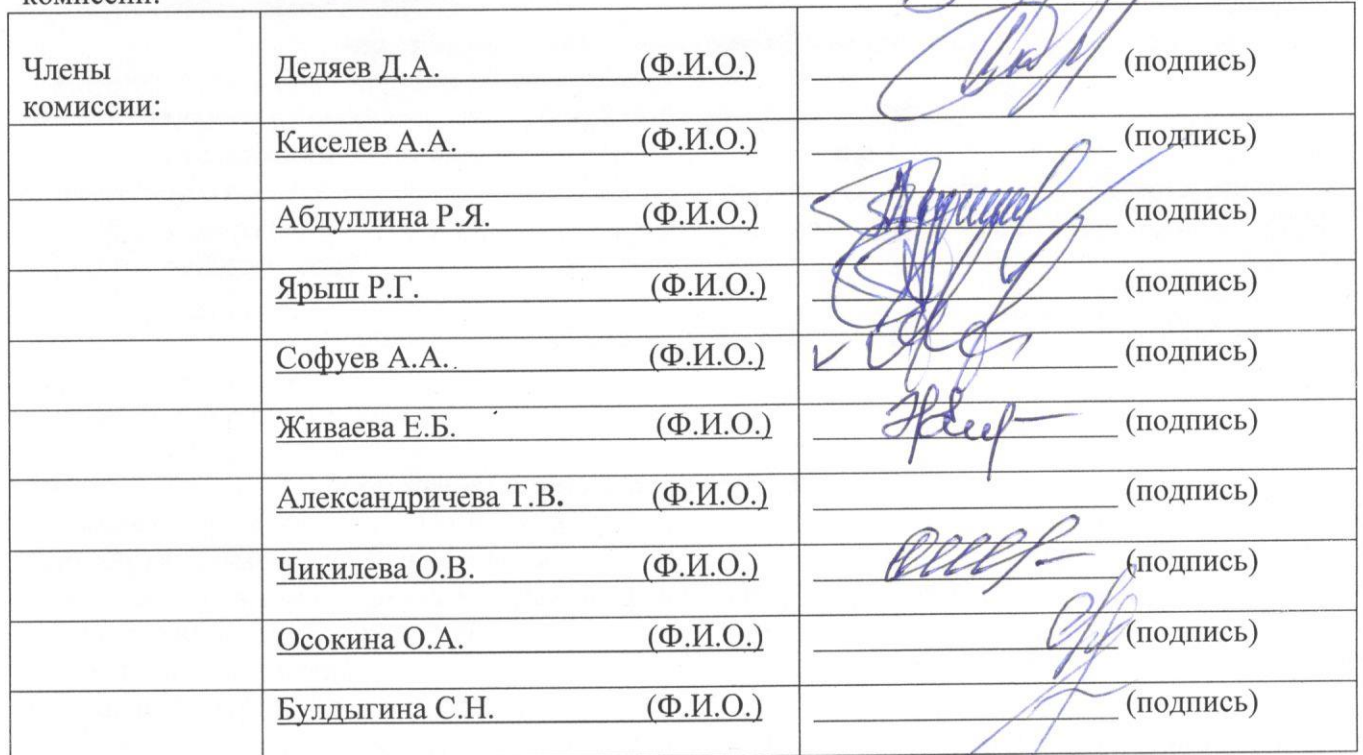 комиссии:
Члены комиссии: Дедяев Д.А. (Ф.И.О.) (подпись)
Киселев А.А. (Ф.И.О.) (подпись)
Абдуллина Р.Я. (Ф.И.О.) (подпись)
Ярыш Р.Г. (Ф.И.О.) (подпись)
Софуев А.А. (Ф.И.О.) (подпись)
Живаева Е.Б. (Ф.И.О.) (подпись)
Александричева Т.В. (Ф.И.О.) (подпись)
Чикилева О.В. (Ф.И.О.) (подпись)
Осокина О.А. (Ф.И.О.) (подпись)
Булдыгина С.Н. (Ф.И.О.) (подпись)